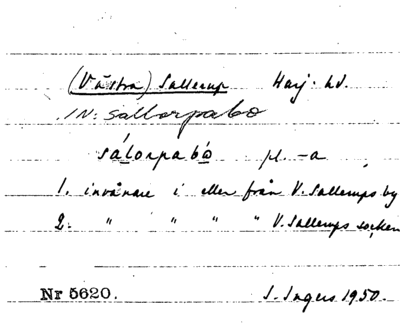 (Västra) Sallerup Harj. hd.
IN: sallorpabo
sálorpabò pl. -a
1. invånare i eller från V. Sallerups by
2. " " " " V. Sallerups socken
Nr 5620. S. Ingers 1950.